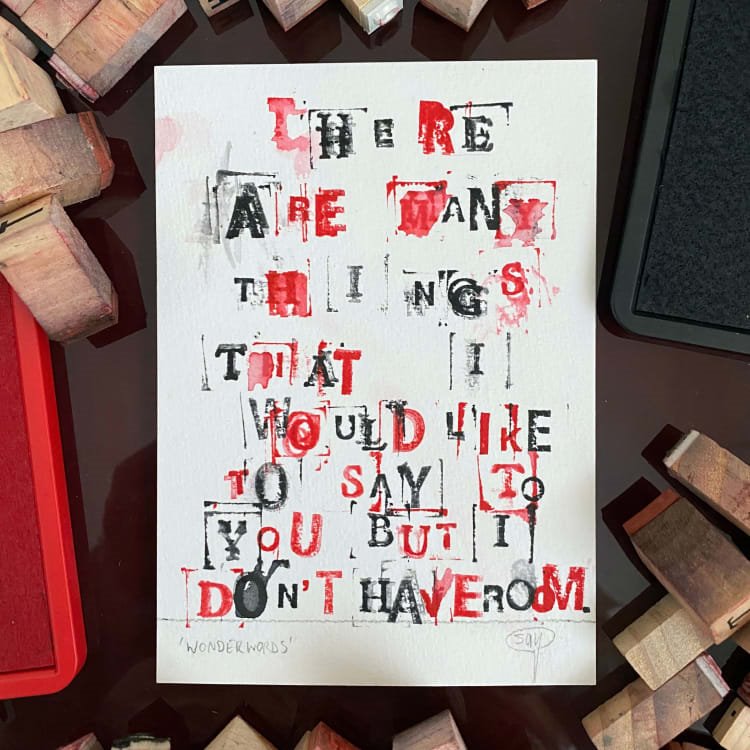 THERE
ARE MANY
THINGS
THAT I
WOULD LIKE
TO SAY TO
YOU BUT I
DON'T HAVE ROOM.
'WONDERWORDS'
say